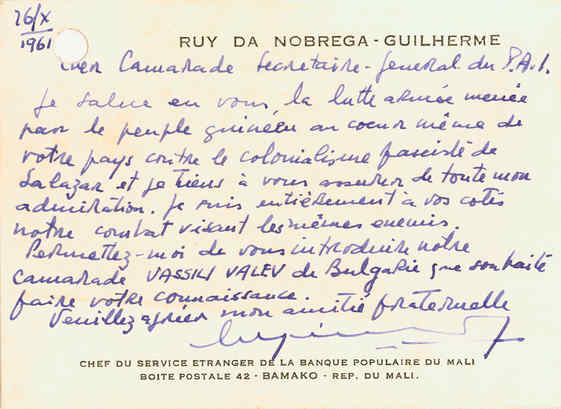 26/X
1961
RUY DA NOBREGA - GUILHERME
Cher Camarade Secretaire-General du P.A.I.
Je salue en vous, la lutte armée menée
par le peuple guinéen au coeur même de
votre pays contre le colonialisme fasciste de
Salazar et je tiens à vous assurer de toute mon
admiration. Je suis entièrement à vos cotés
notre combat visant les mêmes enemis.
Permettez-moi de vous introduire notre
camarade VASSILI VALEV de Bulgarie que souhaite
faire votre connaissance.
Veuillez agréer mon amitié fraternelle
CHEF DU SERVICE ETRANGER DE LA BANQUE POPULAIRE DU MALI
BOITE POSTALE 42 - BAMAKO - REP. DU MALI.